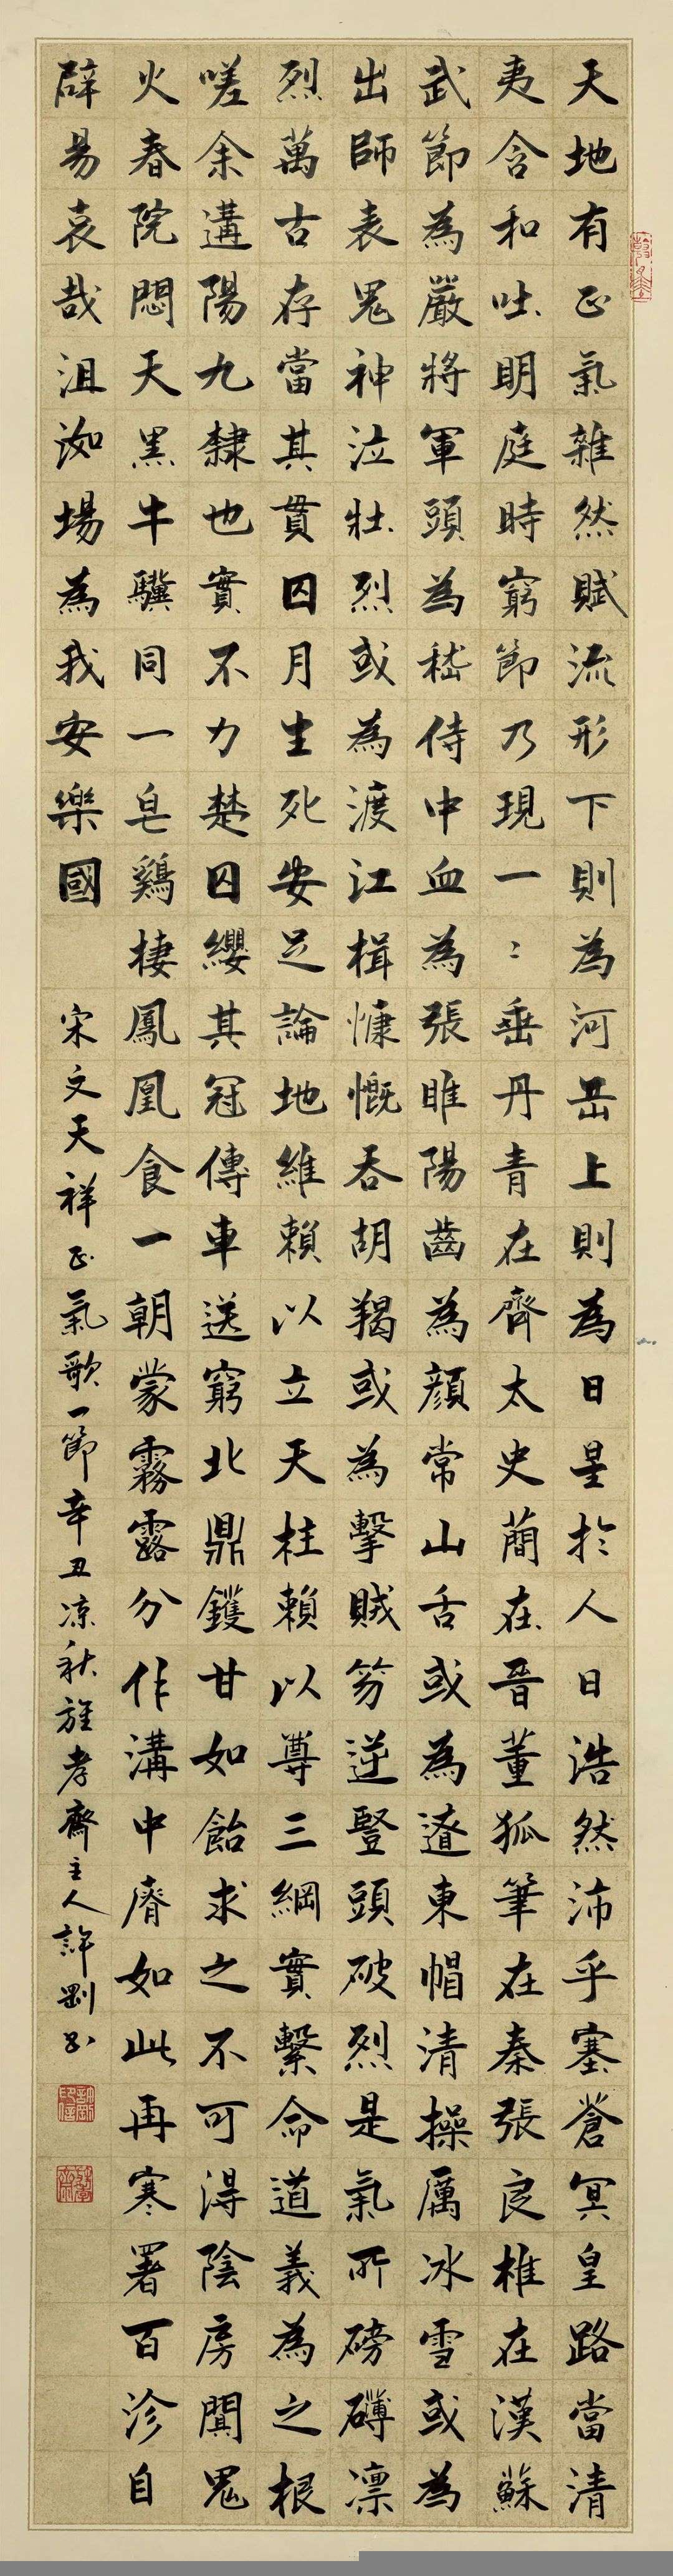 天地有正氣雜然賦流形下則為河岳上則為日星於人曰浩然沛乎塞蒼冥皇路當清
夷含和吐明庭時窮節乃現一〻垂丹青在齊太史簡在晉董狐筆在秦張良椎在漢蘇
武節為嚴將軍頭為嵇侍中血為張睢陽齒為顏常山舌或為遼東帽清操厲冰雪或為
出師表鬼神泣壯烈或為渡江楫慷慨吞胡羯或為擊賊笏逆豎頭破烈是氣所磅礴凜
烈萬古存當其貫囚月生死安足論地維賴以立天柱賴以尊三綱實繫命道義為之根
嗟余遘陽九隸也實不力楚囚纓其冠傳車送窮北鼎鑊甘如飴求之不可得陰房闃鬼
火春院閟天黑牛驥同一皂鷄棲鳳凰食一朝蒙霧露分作溝中瘠如此再寒署百沴自
辟易哀哉沮洳場為我安樂國 宋文天祥正氣歌一節辛丑凉秋旌孝齋主人許剛書